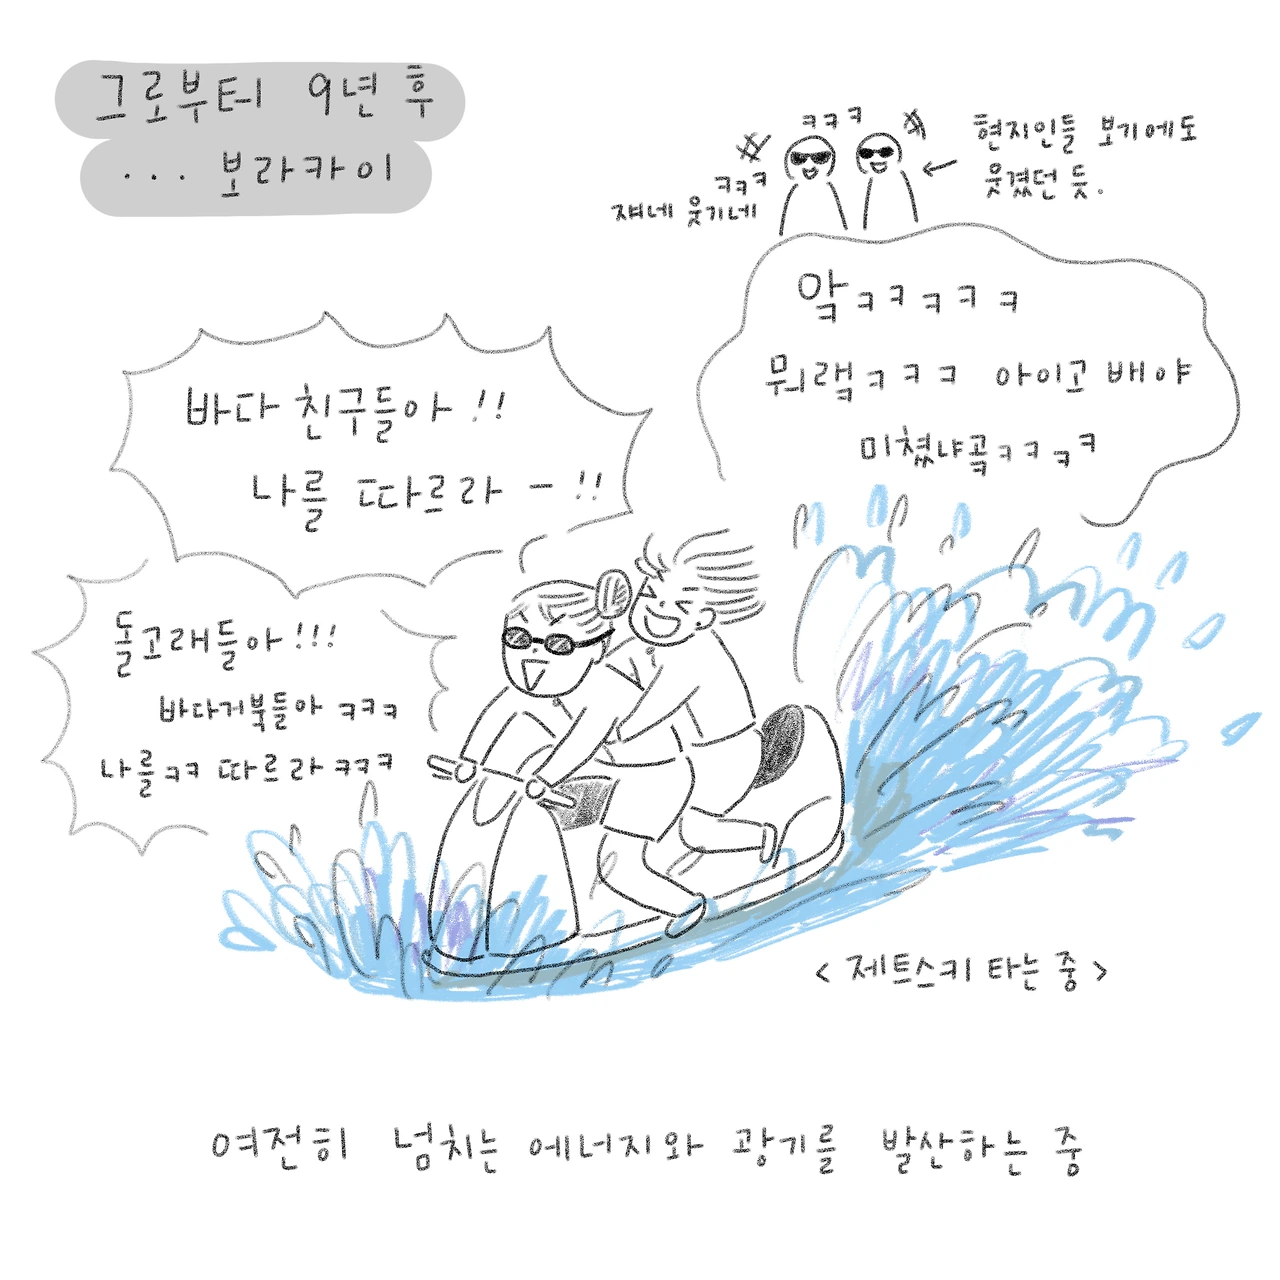 그로부터 9년 후
... 보라카이
ㅋㅋㅋ
ㅋㅋㅋ
쟤네 웃기네
현지인들 보기에도
웃겼던 듯.
악ㅋㅋㅋㅋㅋ
뭐랰ㅋㅋㅋ 아이고 배야
미쳤냐곸ㅋㅋㅋㅋ
바다 친구들아!!
나를 따르라-!!
돌고래들아!!!
바다거북들아 ㅋㅋㅋ
나를ㅋㅋ 따르라ㅋㅋㅋ
<제트스키 타는 중>
여전히 넘치는 에너지와 광기를 발산하는 중